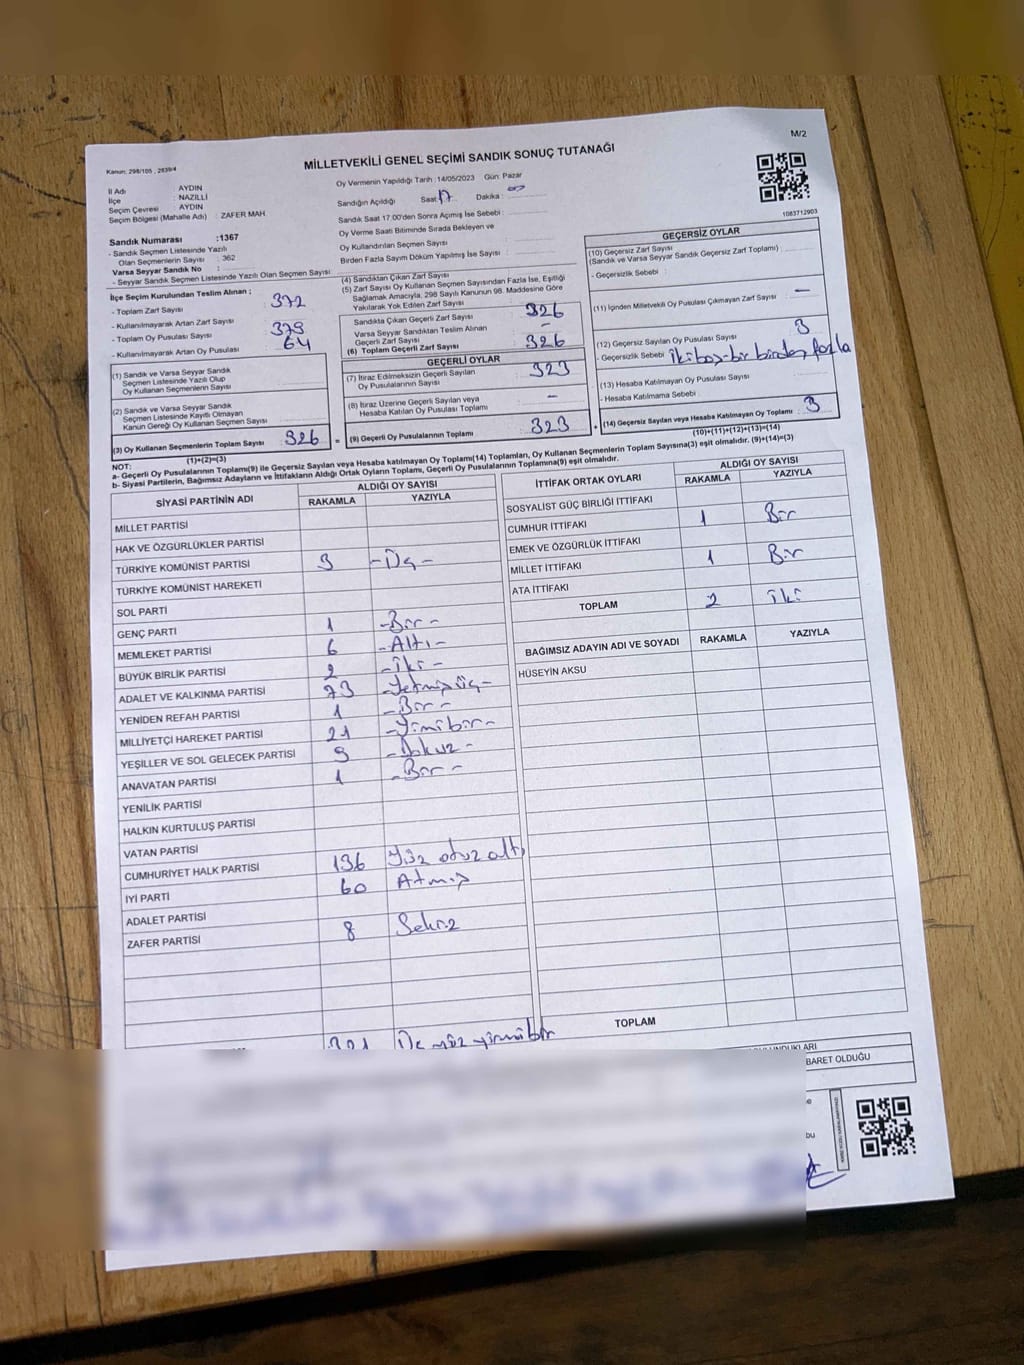 M/2
Kanun: 298/105 , 2839/4
MİLLETVEKİLİ GENEL SEÇİMİ SANDIK SONUÇ TUTANAĞI
İl Adı : AYDIN
İlçe : NAZİLLİ
Seçim Çevresi : AYDIN
Seçim Bölgesi (Mahalle Adı) : ZAFER MAH
Sandık Numarası :1367
- Sandık Seçmen Listesinde Yazılı
Olan Seçmenlerin Sayısı : 362
Varsa Seyyar Sandık No :
- Seyyar Sandık Seçmen Listesinde Yazılı Olan Seçmen Sayısı :
Oy Vermenin Yapıldığı Tarih :14/05/2023 Gün: Pazar
Sandığın Açıldığı Saat: 17 Dakika : 00
Sandık Saat 17:00'den Sonra Açımış İse Sebebi :
Oy Verme Saati Bitiminde Sırada Bekleyen ve
Oy Kullandırılan Seçmen Sayısı :
Birden Fazla Sayım Döküm Yapılmış İse Sayısı :
1083712903
İlçe Seçim Kurulundan Teslim Alınan ;
- Toplam Zarf Sayısı : 372
- Kullanılmayarak Artan Zarf Sayısı :
- Toplam Oy Pusulası Sayısı : 379
- Kullanılmayarak Artan Oy Pusulası : 64
(1) Sandık ve Varsa Seyyar Sandık
Seçmen Listesinde Yazılı Olup
Oy Kullanan Seçmenlerin Sayısı :
(2) Sandık ve Varsa Seyyar Sandık
Seçmen Listesinde Kayıtlı Olmayan
Kanun Gereği Oy Kullanan Seçmen Sayısı :
(3) Oy Kullanan Seçmenlerin Toplam Sayısı : 326
(1)+(2)=(3)
(4) Sandıktan Çıkan Zarf Sayısı :
(5) Zarf Sayısı Oy Kullanan Seçmen Sayısından Fazla İse, Eşitliği
Sağlamak Amacıyla, 298 Sayılı Kanunun 98. Maddesine Göre
Yakılarak Yok Edilen Zarf Sayısı :
Sandıkta Çıkan Geçerli Zarf Sayısı : 326
Varsa Seyyar Sandıktan Teslim Alınan
Geçerli Zarf Sayısı : -
(6) Toplam Geçerli Zarf Sayısı : 326
GEÇERLİ OYLAR
(7) İtiraz Edilmeksizin Geçerli Sayılan
Oy Pusulalarının Sayısı : 323
(8) İtiraz Üzerine Geçerli Sayılan veya
Hesaba Katılan Oy Pusulası Toplamı : -
= (9) Geçerli Oy Pusulalarının Toplamı : 323
GEÇERSİZ OYLAR
(10) Geçersiz Zarf Sayısı
(Sandık ve Varsa Seyyar Sandık Geçersiz Zarf Toplamı) :
- Geçersizlik Sebebi :
(11) İçinden Milletvekili Oy Pusulası Çıkmayan Zarf Sayısı : -
(12) Geçersiz Sayılan Oy Pusulası Sayısı : 3
- Geçersizlik Sebebi : iki boş-bir birden fazla
(13) Hesaba Katılmayan Oy Pusulası Sayısı :
- Hesaba Katılmama Sebebi :
+ (14) Geçersiz Sayılan veya Hesaba Katılmayan Oy Toplamı : 3
(10)+(11)+(12)+(13)=(14)
NOT:
a- Geçerli Oy Pusulalarının Toplamı(9) ile Geçersiz Sayılan veya Hesaba katılmayan Oy Toplamı(14) Toplamları, Oy Kullanan Seçmenlerin Toplam Sayısına(3) eşit olmalıdır. (9)+(14)=(3)
b- Siyasi Partilerin, Bağımsız Adayların ve İttifakların Aldığı Ortak Oyların Toplamı, Geçerli Oy Pusulalarının Toplamına(9) eşit olmalıdır.
SİYASİ PARTİNİN ADI ALDIĞI OY SAYISI
RAKAMLA YAZIYLA
MİLLET PARTİSİ
HAK VE ÖZGÜRLÜKLER PARTİSİ
TÜRKİYE KOMÜNİST PARTİSİ 3 -Üç-
TÜRKİYE KOMÜNİST HAREKETİ
SOL PARTİ
GENÇ PARTİ 1 -Bir-
MEMLEKET PARTİSİ 6 -Altı-
BÜYÜK BİRLİK PARTİSİ 2 -iki-
ADALET VE KALKINMA PARTİSİ 73 -Yetmişüç-
YENİDEN REFAH PARTİSİ 1 -Bir-
MİLLİYETÇİ HAREKET PARTİSİ 21 -Yirmibir-
YEŞİLLER VE SOL GELECEK PARTİSİ 9 -Dokuz-
ANAVATAN PARTİSİ 1 -Bir-
YENİLİK PARTİSİ
HALKIN KURTULUŞ PARTİSİ
VATAN PARTİSİ
CUMHURİYET HALK PARTİSİ 136 Yüz otuz altı
İYİ PARTİ 60 Atmış
ADALET PARTİSİ
ZAFER PARTİSİ 8 Sekiz
321 Üç yüz yirmi bir
İTTİFAK ORTAK OYLARI ALDIĞI OY SAYISI
RAKAMLA YAZIYLA
SOSYALİST GÜÇ BİRLİĞİ İTTİFAKI
CUMHUR İTTİFAKI 1 Bir
EMEK VE ÖZGÜRLÜK İTTİFAKI
MİLLET İTTİFAKI 1 Bir
ATA İTTİFAKI
TOPLAM 2 iki
BAĞIMSIZ ADAYIN ADI VE SOYADI RAKAMLA YAZIYLA
HÜSEYİN AKSU
TOPLAM
BARET OLDUĞU
bu